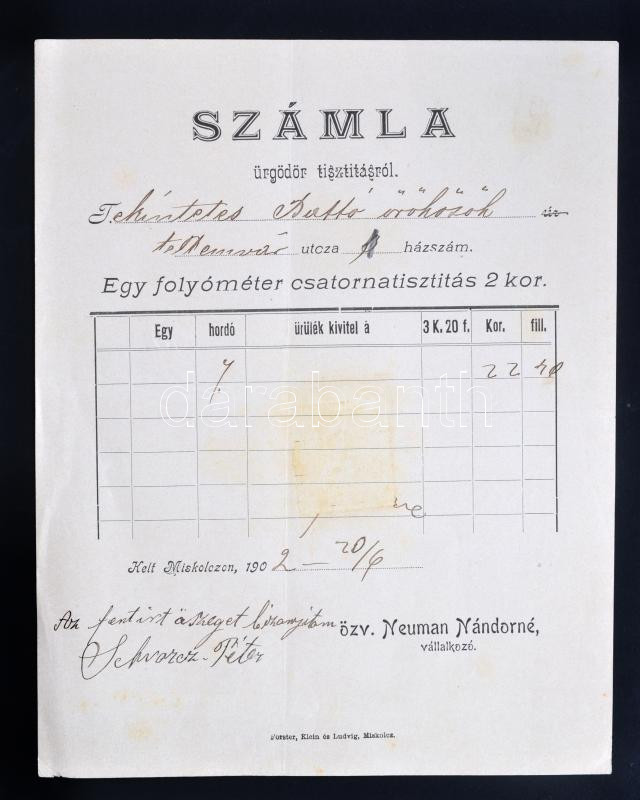 SZÁMLA
ürgödör tisztitásról.
Tekintetes Battó örökösök úr
utcza 1 házszám.
Egy folyóméter csatornatisztitás 2 kor.
Egy hordó ürülék kivitel á 3 K. 20 f. Kor. fill.
7 22 40
darabanth
Kelt Miskolczon, 1902 – 20/6
Az fentirt öszeget bizonyitom
özv. Neuman Nándorné,
Schvarcz Péter
vállalkozó.
Forster, Klein és Ludvig, Miskolcz.